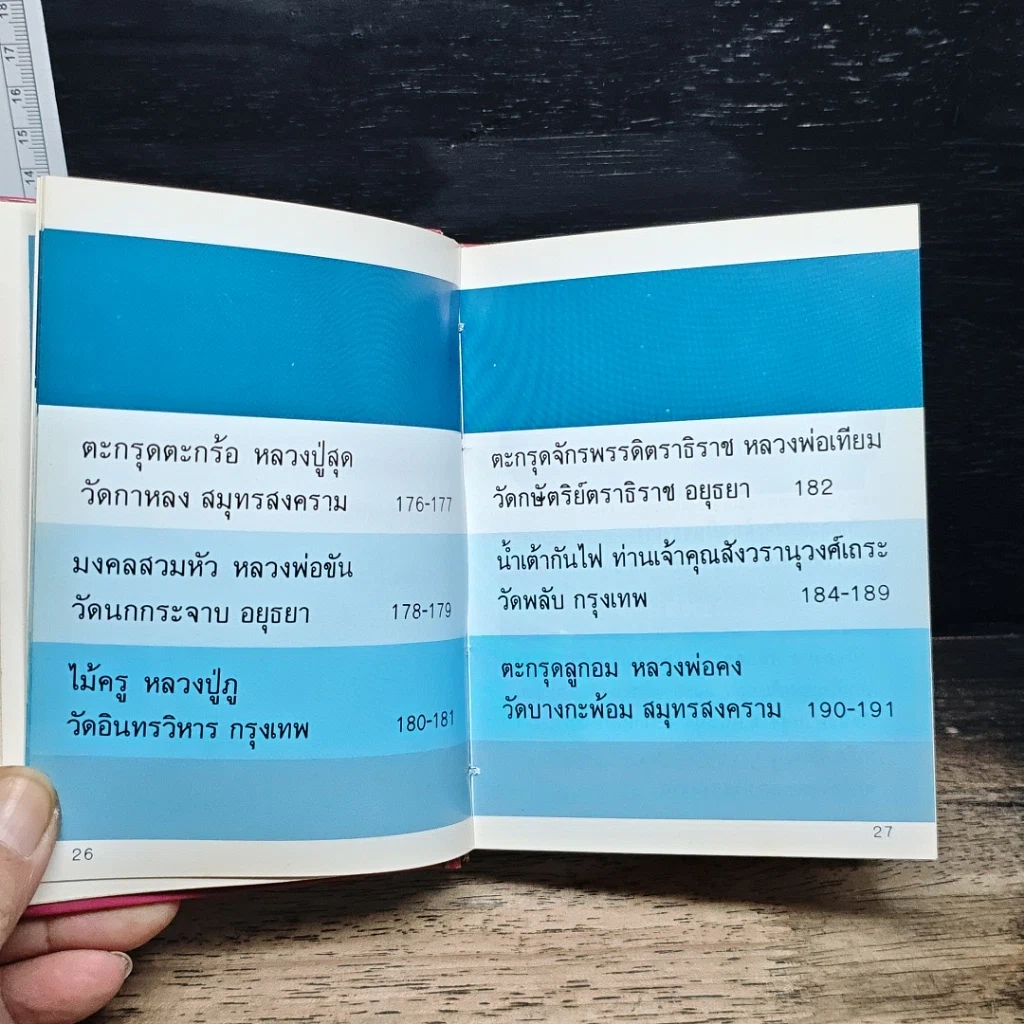 18
17
16
15
14
ตะกรุดตะกร้อ หลวงปู่สุด
วัดกาหลง สมุทรสงคราม 176-177
มงคลสวมหัว หลวงพ่อขัน
วัดนกกระจาบ อยุธยา 178-179
ไม้ครู หลวงปู่ภู
วัดอินทรวิหาร กรุงเทพ 180-181
26
ตะกรุดจักรพรรดิตราธิราช หลวงพ่อเทียม
วัดกษัตริย์ตราธิราช อยุธยา 182
น้ำเต้ากันไฟ ท่านเจ้าคุณสังวรานุวงศ์เถระ
วัดพลับ กรุงเทพ 184-189
ตะกรุดลูกอม หลวงพ่อคง
วัดบางกะพ้อม สมุทรสงคราม 190-191
27